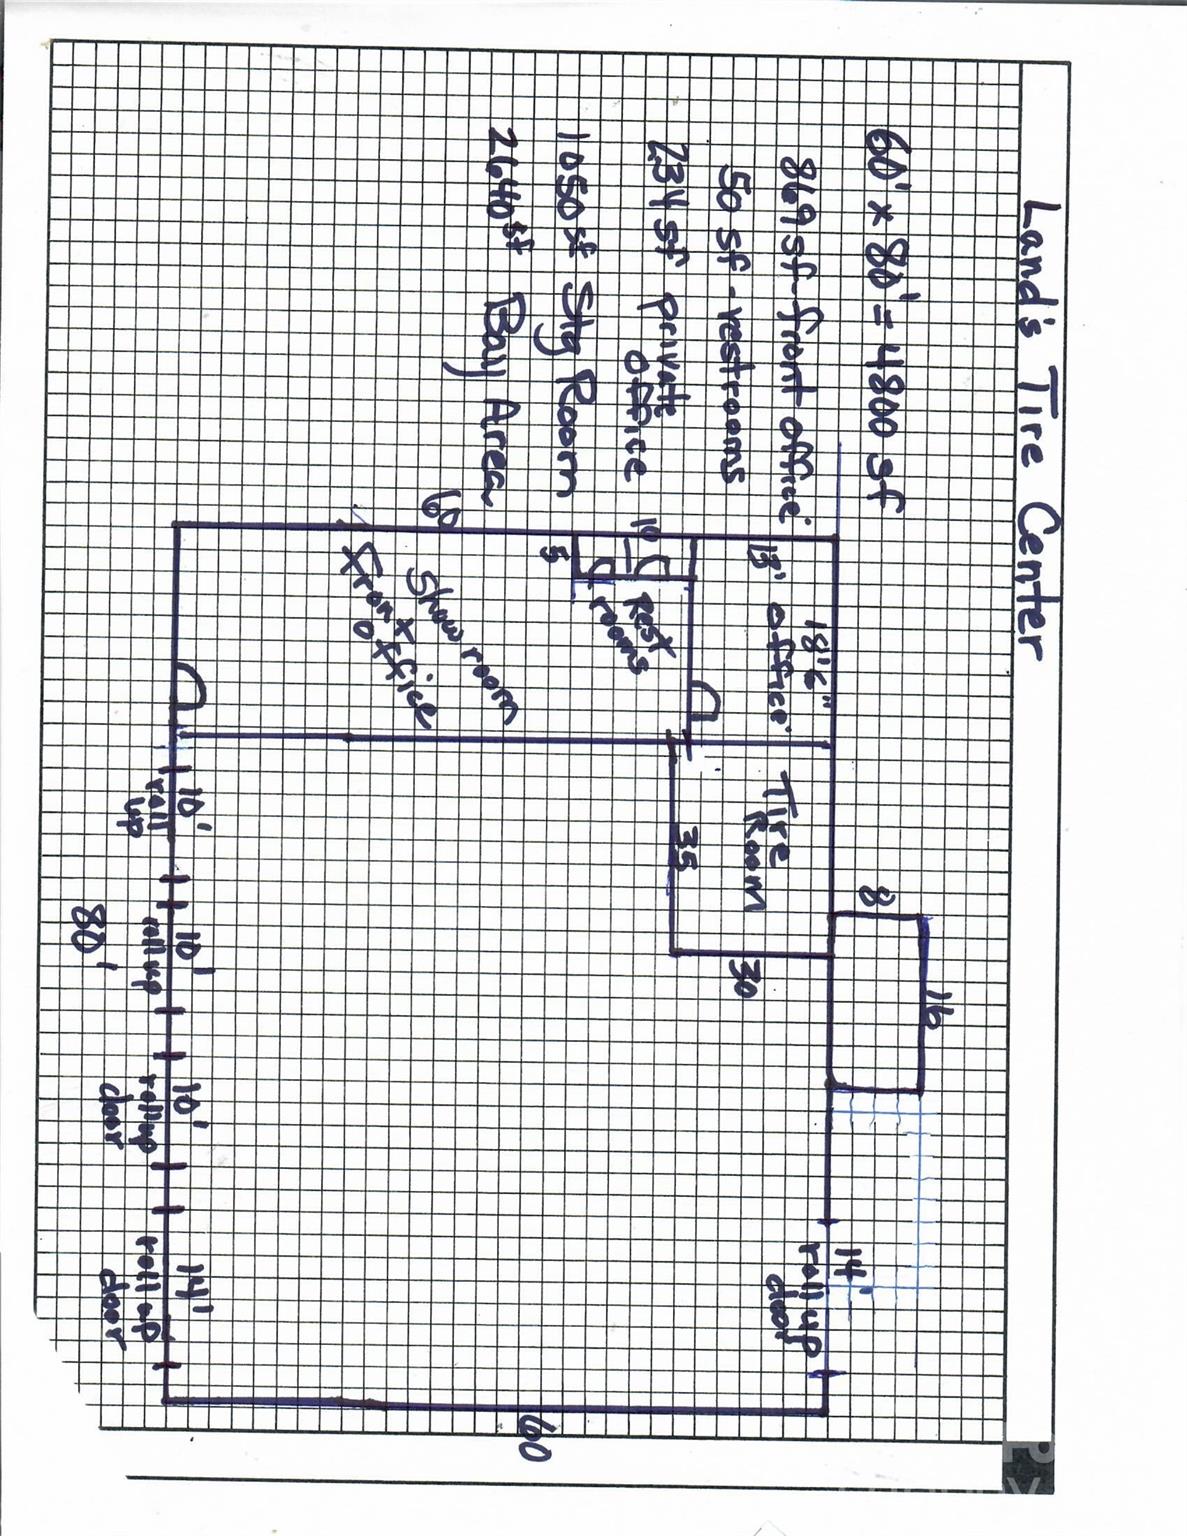 Land's Tire Center
60' x 80' = 4800 sf
869 sf - front office
50 sf - restrooms
234 sf private
office
1050 sf Stg Room
2640 sf Bay Area
60
18'6"
13' office
10
5
Rest
rooms
Show room
Front
office
Tire
Room
35
30
8
16
14'
roll up
door
10'
roll
up
10'
roll up
10'
roll up
door
14'
roll up
door
80'
60